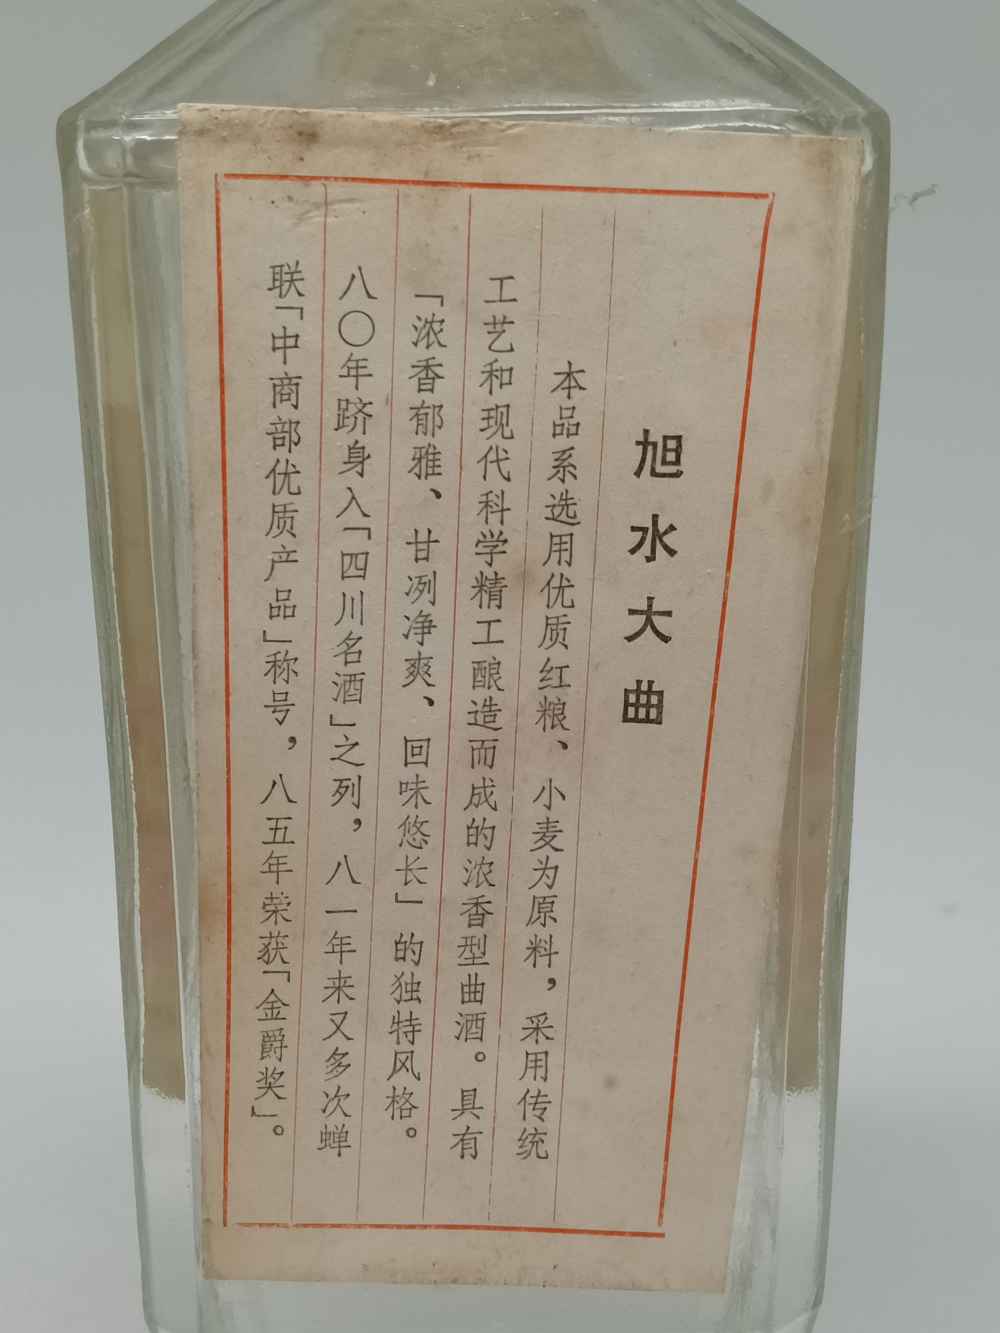 旭水大曲
本品系选用优质红粮、小麦为原料，采用传统
工艺和现代科学精工酿造而成的浓香型曲酒。具有
「浓香郁雅、甘冽净爽、回味悠长」的独特风格。
八〇年跻身入「四川名酒」之列，八一年来又多次蝉
联「中商部优质产品」称号，八五年荣获「金爵奖」。